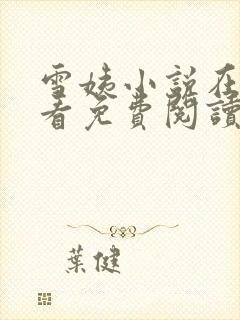 雪姨小说在
看免費閱讀
葉健